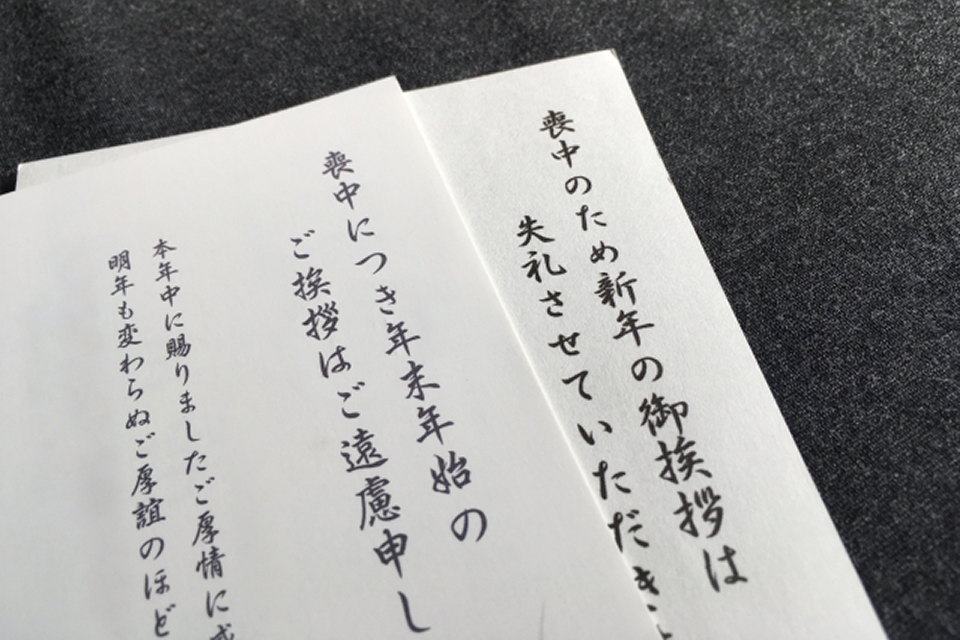 喪中のため新年の御挨拶は
失礼させていただき
喪中につき年末年始の
ご挨拶はご遠慮申し
本年中に賜りましたご厚情に感
明年も変わらぬご厚誼のほど